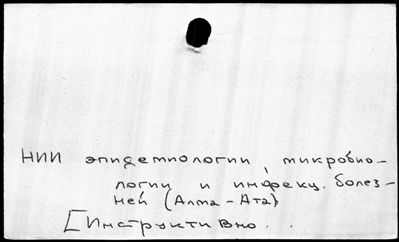 НИИ эпидемиологии, микробио-
логии и инфекц. болез-
ней (Алма-Ата)
[Инструктивно...